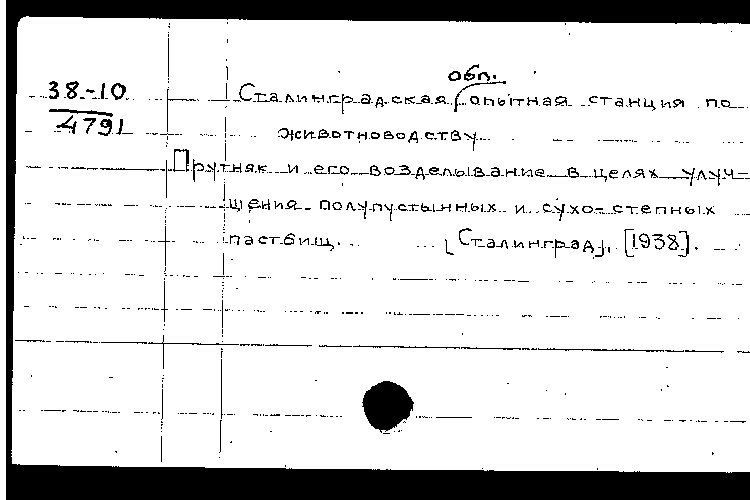 обл.
38-10 Сталинградская опытная станция по
4791 животноводству.
Прутняк и его возделывание в целях улуч-
шения полупустынных и сухо-степных
пастбищ. [Сталинград], [1938].